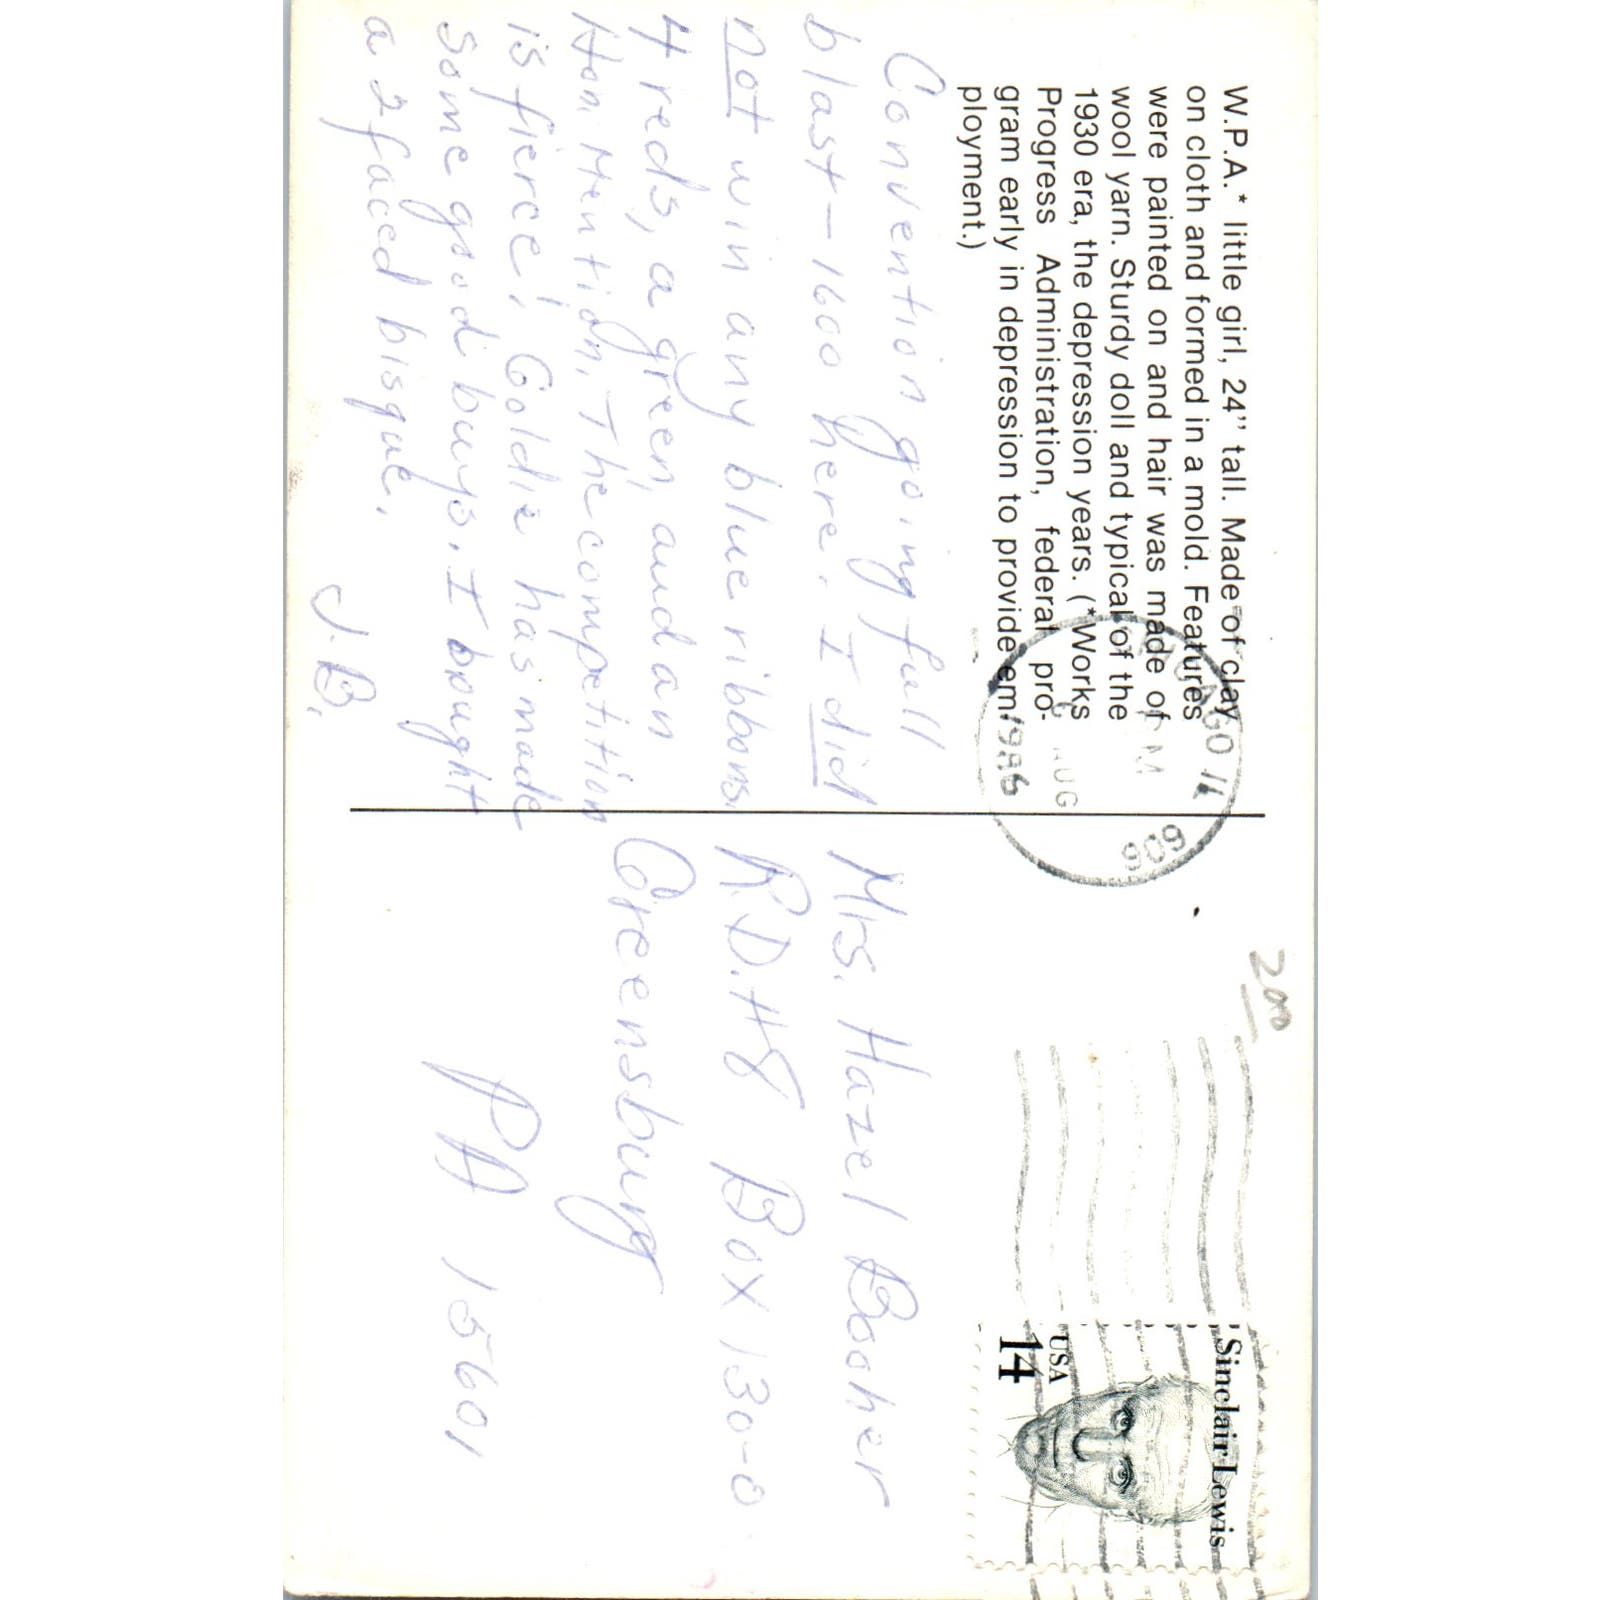 W.P.A.* little girl, 24" tall. Made of clay
on cloth and formed in a mold. Features
were painted on and hair was made of
wool yarn. Sturdy doll and typical of the
1930 era, the depression years. (*Works
Progress Administration, federal pro-
gram early in depression to provide em-
ployment.)
Convention going full
blast — 1600 here. I did
not win any blue ribbons.
4 reds, a green, and an
Hon. Mention. The competition
is fierce! Goldie has made
some good buys. I bought
a 2 faced bisque.
J.B.
CHICAGO IL
606
PM
AUG
1986
200
Sinclair Lewis
USA
14
Mrs. Hazel Booher
R.D. #8 Box 130-0
Greensburg
PA 15601